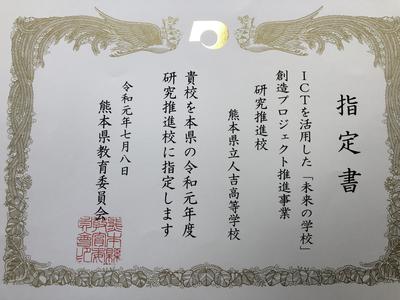 指定書
ICTを活用した「未来の学校」
創造プロジェクト推進事業
研究推進校
熊本県立人吉高等学校
貴校を本県の令和元年度
研究推進校に指定します
令和元年七月八日
熊本県教育委員会